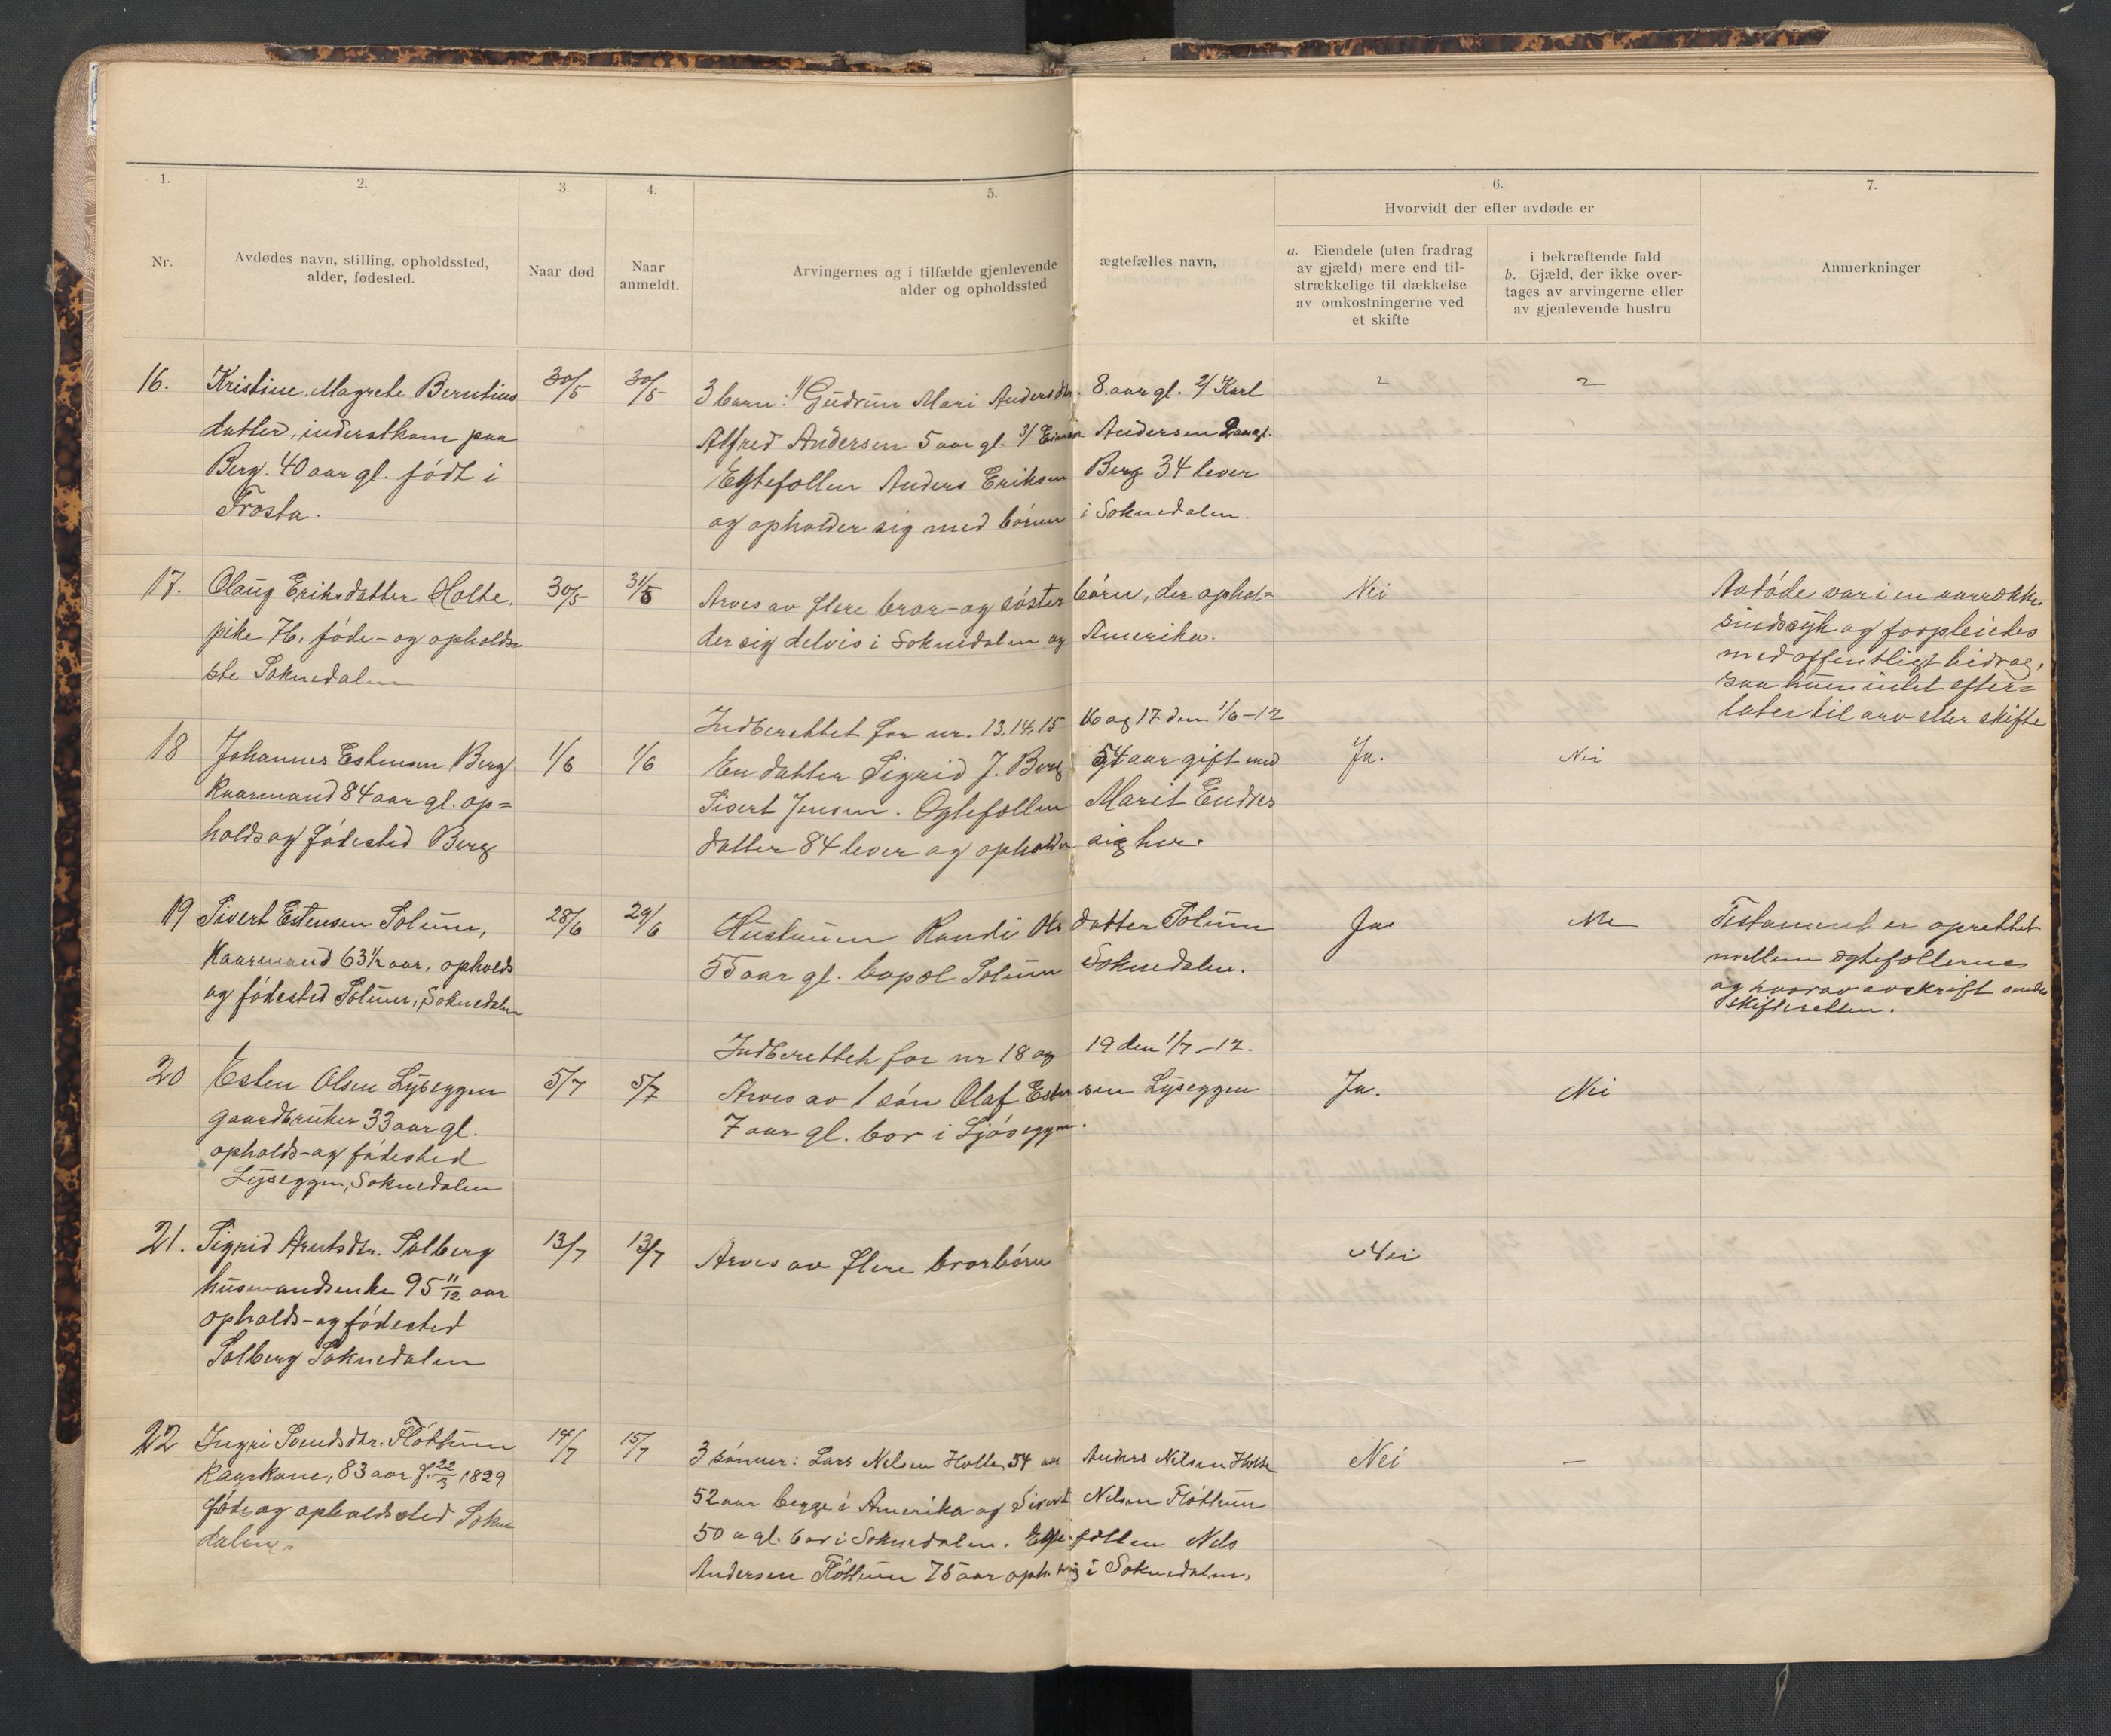 1.
2.
3.
4.
5.
6.
7.
Hvorvidt der efter avdøde er
Nr.
Avdødes navn, stilling, opholdssted,
alder, fødested.
Naar død
Naar
anmeldt.
Arvingernes og i tilfælde gjenlevende ægtefælles navn,
alder og opholdssted
a. Eiendele (uten fradrag
av gjæld) mere end til-
strækkelige til dækkelse
av omkostningerne ved
et skifte
i bekræftende fald
b. Gjæld, der ikke over-
tages av arvingerne eller
av gjenlevende hustru
Anmerkninger
16.
Kristine Magrete Berntins
datter, inderstkone paa
Berg. 40 aar gl. født i
Frosta.
30/5
30/5
3 barn: 1/ Gudrun Mari Andersdtr. 8 aar gl. 2/ Karl
Alfred Andersen 5 aar gl. 3/ Einar Andersen 2 aar gl.
Egtefællen Anders Eriksen Berg 34 lever
og opholder sig med børnene i Soknedalen.
17.
Olaug Eriksdatter Holte,
pike 74, føde- og opholds-
ste Soknedalen
30/5
31/5
Arves av flere bror- og søster børn, der ophol=
der sig delvis i Soknedalen og Amerika.
Nei
Avdøde var i en aarrække
sindssyk og forpleiedes
med offentligt bidrag,
saa hun intet efter=
later til arv eller skifte
Indberettet for nr. 13, 14, 15 16 og 17 den 1/6-12
18
Johannes Estensen Berg
Kaarmand 84 aar gl. op=
holds og fødested Berg
1/6
1/6
En datter Sigrid J. Berg 54 aar gift med
Sivert Jensen. Egtefellen Marit Endres
datter 84 lever og opholder sig her.
Ja.
Nei
19
Sivert Estensen Solum,
Kaarmand 63 1/2 aar, opholds
og fødested Solum, Soknedalen
28/6
29/6
Hustruen Randi Ols datter Solum
55 aar gl. bopæl Solum Soknedalen.
Ja
Nei
Testament er oprettet
mellem ægtefællerne
og hvorav avskrift sendes
skifteretten.
Indberettet for nr 18 og 19 den 1/7-12.
20
Esten Olsen Lyseggen
gaardbruker 33 aar gl.
opholds- og fødested
Lyseggen, Soknedalen
5/7
5/7
Arves av 1 søn Olaf Esten sen Lyseggen
7 aar gl. bor i Ljøseggen.
Ja.
Nei
21.
Sigrid Arntsdtr. Solberg
husmandsenke 95 11/12 aar
opholds- og fødested
Solberg Soknedalen
13/7
13/7
Arves av flere brorbørn
Nei
22
Ingri Svendsdtr. Fløttum
Kaarkone, 83 aar f. 22/3 1829
føde og opholdssted Sokne
dalen.
14/7
15/7
3 sønner: Lars Nilsen Holte 54 aar Anders Nilsen Holte
52 aar begge i Amerika og Sivert Nilsen Fløttum
50 a gl. bor i Soknedalen. Egte- fællen Nils
Andersen Fløttum 75 aar oph. sig i Soknedalen.
Nei
—